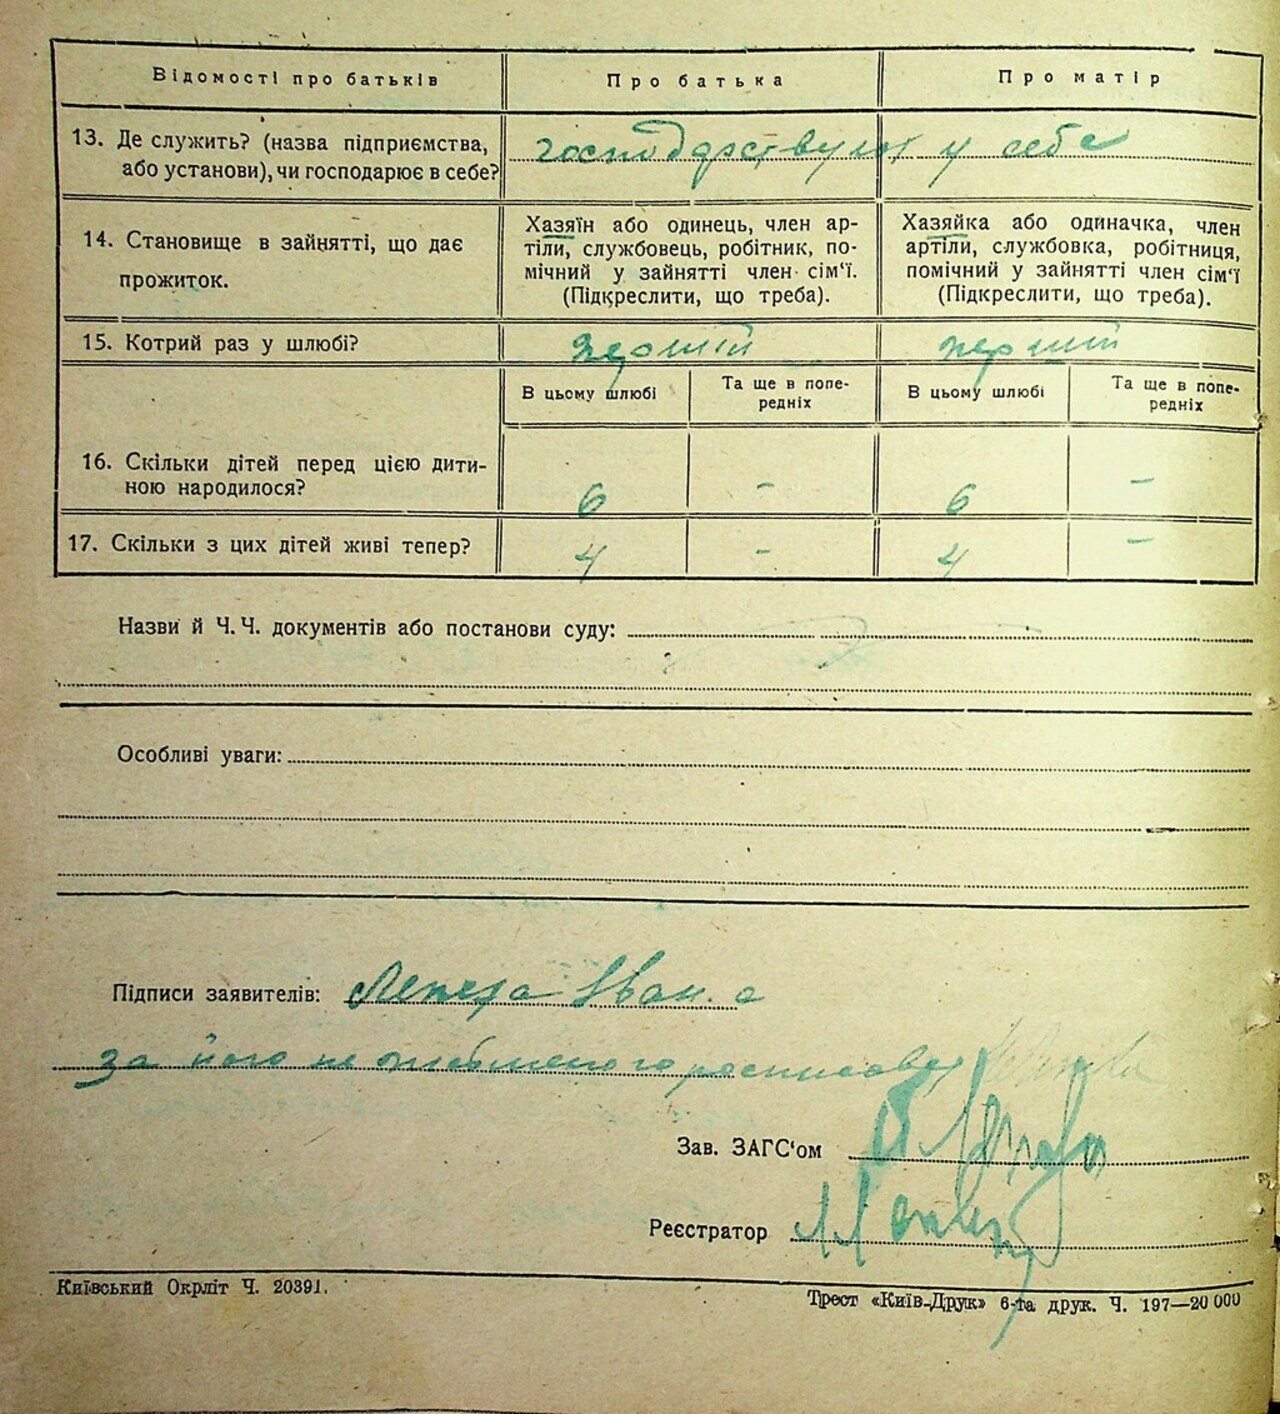 Відомості про батьків Про батька Про матір
13. Де служить? (назва підприємства, або установи), чи господарює в себе? господарствують у себе
14. Становище в зайнятті, що дає прожиток.
Хазяїн або одинець, член ар-
тіли, службовець, робітник, по-
мічний у зайнятті член сім‘ї.
(Підкреслити, що треба).
Хазяйка або одиначка, член
артіли, службовка, робітниця,
помічний у зайнятті член сім‘ї
(Підкреслити, що треба).
15. Котрий раз у шлюбі? перший перший
В цьому шлюбі Та ще в попе-редніх В цьому шлюбі Та ще в попе-редніх
16. Скільки дітей перед цією дити-
ною народилося? 6 - 6 -
17. Скільки з цих дітей живі тепер? 4 - 4 -
Назви й Ч. Ч. документів або постанови суду:
Особливі уваги:
Підписи заявителів: Іван
за його
Зав. ЗАГС‘ом
Реєстратор
Київський Окрліт Ч. 20391.
Трест «Київ-Друк» 6-та друк. Ч. 197—20 000